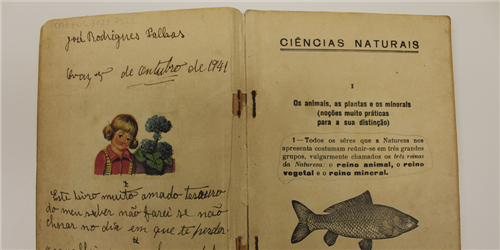 José Rodrigues
de outubro de 1941
Este livro muito amado tesouro
do meu saber não farei se não
chorar no dia em que te perder
CIÊNCIAS NATURAIS
I
Os animais, as plantas e os minerais
(noções muito práticas
para a sua distinção)
1—Todos os sêres que a Natureza nos
apresenta costumam reünir-se em três grandes
grupos, vulgarmente chamados os três reinos
da Natureza: o reino animal, o reino
vegetal e o reino mineral.